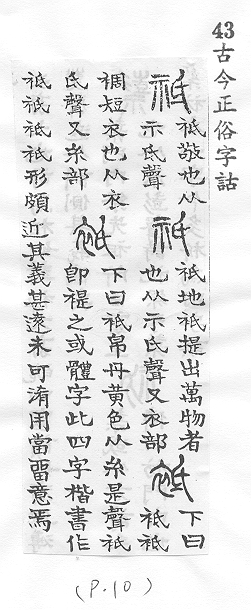 43 古今正俗字詁
祗 祗敬也从
示氐聲
祇 祇地祇提出萬物者
也从示氏聲又衣部
袛 下曰
袛袛
裯短衣也从衣
氐聲又糸部
衹 下曰衹帛丹黃色从糸是聲衹
卽禔之或體字此四字楷書作
祗祇袛衹形頗近其義甚遠未可淆用當畱意焉
(P.10)